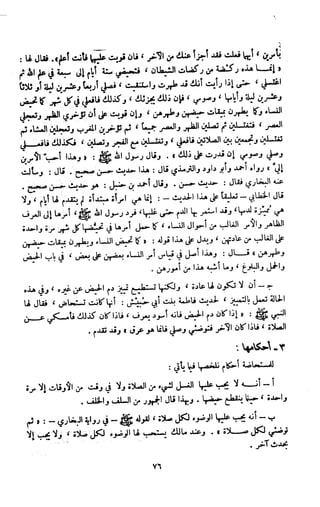 بأمرين، أيهما فعلت فقد أجزأ عنك من الآخر، فإن قويت عليهما فأنت أعلم. فقال لها:
« إنما هذه ركضة من ركضات الشيطان، فتحيضي ستة أيام إلى سبعة في علم الله ثم
اغتسلي، حتى إذا رأيت أنك قد طهرت واستنقيت، فصلي أربعاً وعشرين ليلة أو ثلاثاً
وعشرين ليلة وأيامها، وصومي، فإن ذلك يجزئك، وكذلك فافعلي في كل شهر كما تحيض
النساء وكما يطهرن بميقات حيضهن وطهرهن، وإن قويت على أن تؤخري الظهر وتعجلي
العصر، فتغتسلين ثم تصلين الظهر والعصر جميعاً، ثم تؤخرين المغرب وتعجلين العشاء ثم
تغتسلين وتجمعين بين الصلاتين فافعلي، وتغتسلين مع الفجر وتصلين، فكذلك فافعلي
وصلي وصومي إن قدرت على ذلك ». وقال رسول الله ﷺ: « وهذا أحب الأمرين
إليّ » رواه أحمد وأبو داود والترمذي قال: هذا حديث حسن صحيح. قال: وسألت
عنه البخاري فقال: حديث حسن. وقال أحمد بن حنبل: هو حديث حسن صحيح.
قال الخطابي - تعليقاً على هذا الحديث -: إنما هي امرأة مبتدأة لم يتقدم لها أيام، ولا
هي مميزة لدمها، وقد استمر بها الدم حتى غلبها، فرد رسول الله ﷺ أمرها إلى العرف
الظاهر والأمر الغالب من أحوال النساء، كما حمل أمرها في تحيضها كل شهر مرة واحدة
على الغالب من عادتهن، ويدل على هذا قوله: « كما تحيض النساء ويطهرن بميقات حيضهن
وطهرهن » قال: وهذا أصل في قياس أمر النساء بعضهن على بعض، في باب الحيض
والحمل والبلوغ، وما أشبه هذا من أمورهن.
جـ - أن لا تكون لها عادة، ولكنها تستطيع تمييز دم الحيض عن غيره، وفي هذه
الحالة تعمل بالتمييز، لحديث فاطمة بنت أبي حبيش: أنها كانت تستحاض، فقال لها
النبي ﷺ: « إذا كان دم الحيض فإنه أسود يعرف، فإذا كان كذلك فأمسكي عن
الصلاة، فإذا كان الآخر فتوضئي وصلي فإنما هو عرق » وقد تقدم.
٣ - أحكامها:
للمستحاضة أحكام نلخصها فيما يأتي:
أ - أنه لا يجب عليها الغسل لشيء من الصلاة ولا في وقت من الأوقات إلا مرة
واحدة، حينما ينقطع حيضها. وبهذا قال الجمهور من السلف والخلف.
ب - أنه يجب عليها الوضوء لكل صلاة، لقوله ﷺ - في رواية البخاري -: « ثم
توضئي لكل صلاة ». وعند مالك يستحب لها الوضوء لكل صلاة، ولا يجب إلا
بحدث آخر.
٧٦